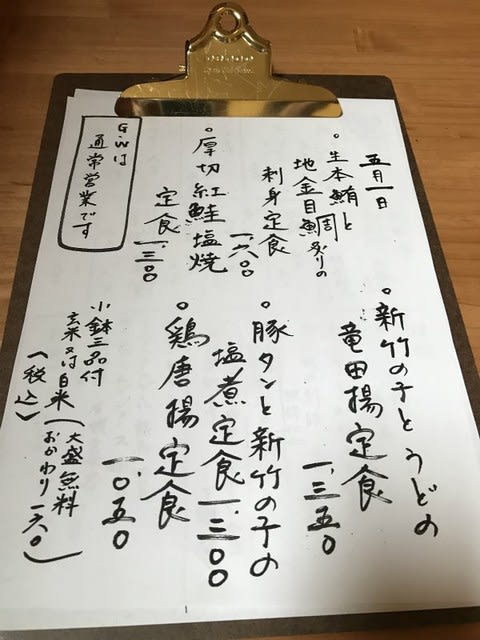 五月一日
。生本鮪と
地金目鯛炙りの
刺身定食
一、六〇〇
。厚切紅鮭塩焼
定食 一、三〇〇
G.Wは
通常営業です
。新竹の子とうどの
竜田揚定食
一、三五〇
。豚タンと新竹の子の
塩煮定食 一、三〇〇
。鶏唐揚定食
一、〇五〇
小鉢三品付
玄米又は白米(大盛無料
おかわり一六〇)
(税込)